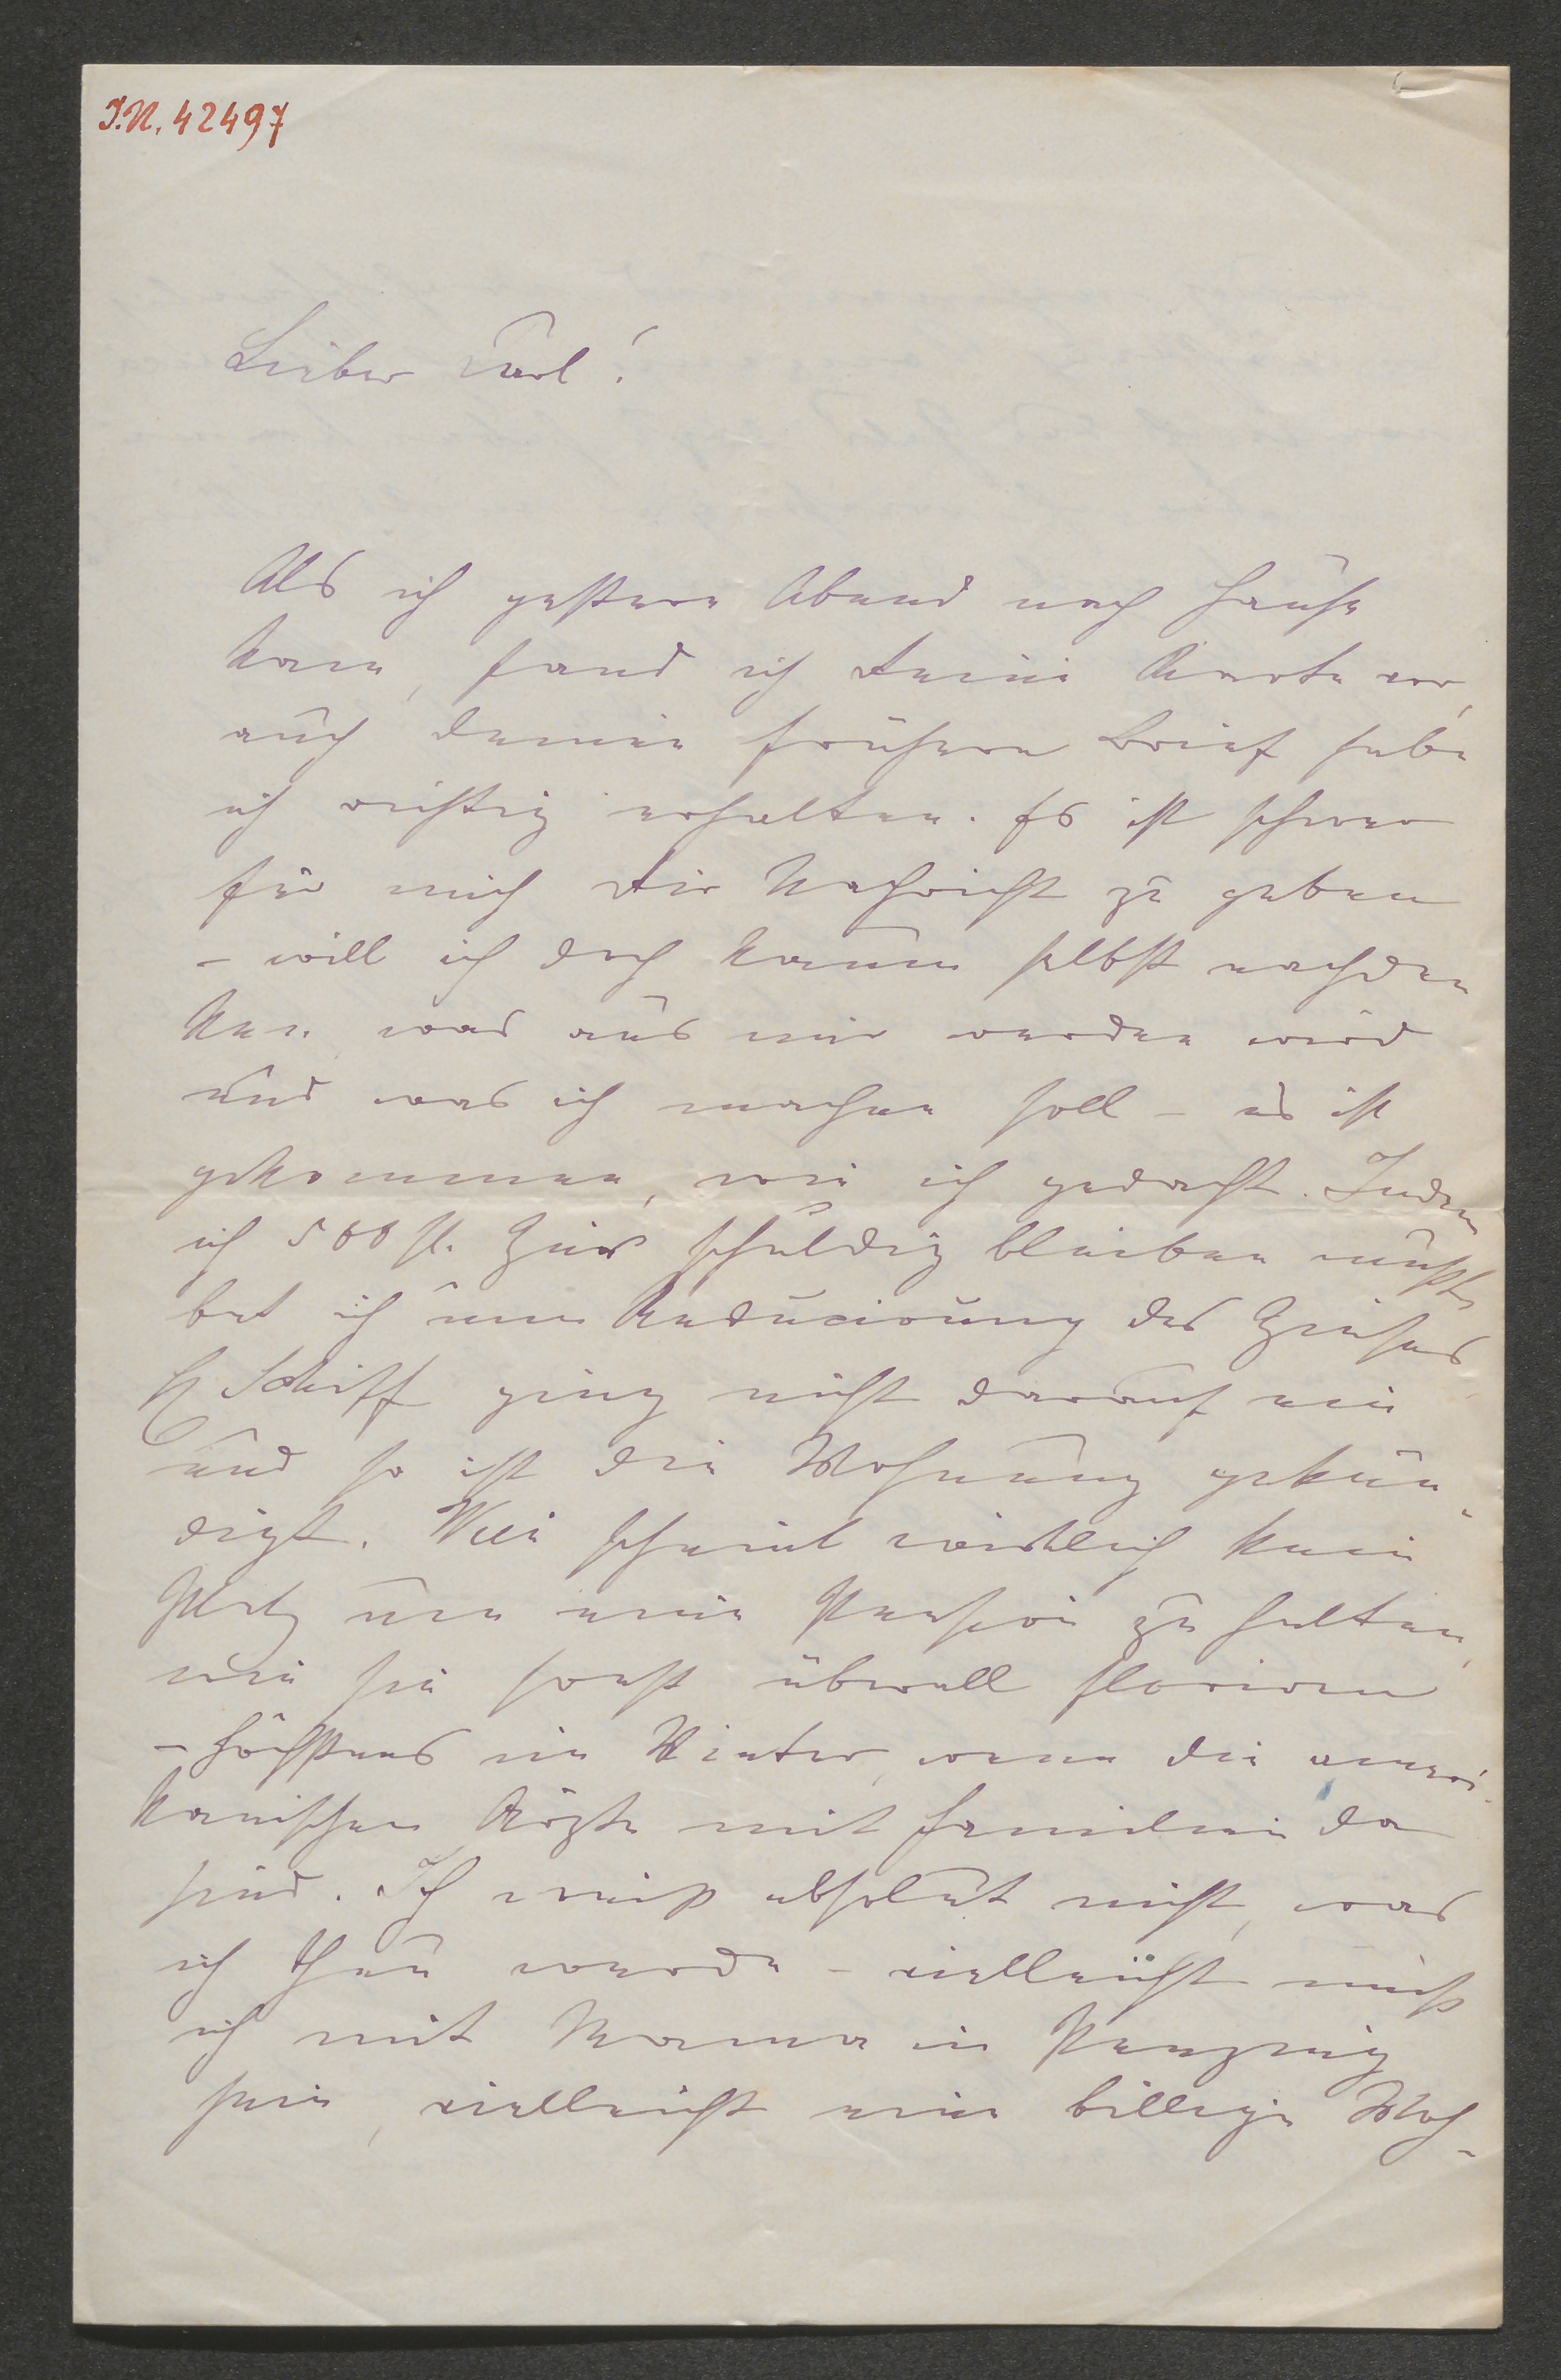 I.N. 42497
Lieber Carl!
Als ich gestern Abend nach Hause
kam, fand ich Deine Karte vor,
auch deinen früheren Brief habe
ich richtig erhalten. Es ist schwer
für mich Dir Nachricht zu geben
– will ich doch kaum selbst nachden
ken, was aus mir werden wird
und was ich machen soll – es ist
gekommen, wie ich gedacht. Indem
ich 500 fl. Zins schuldig bleiben mußte
bat ich um Reducirung des Zinses
H Schiff ging nicht darauf ein
und so ist die Wohnung gekün-
digt. Wien scheint wirklich kein
Platz um eine Pension zu halten,
wie sie sonst überall floriren
– höchstens im Winter, wenn die ameri-
kanischen Ärzte mit Familien da
sind. Ich weiß absolut nicht, was
ich thun werde – vielleicht muß
ich mit Mama in Penzing
sein, vielleicht eine billige Woh-